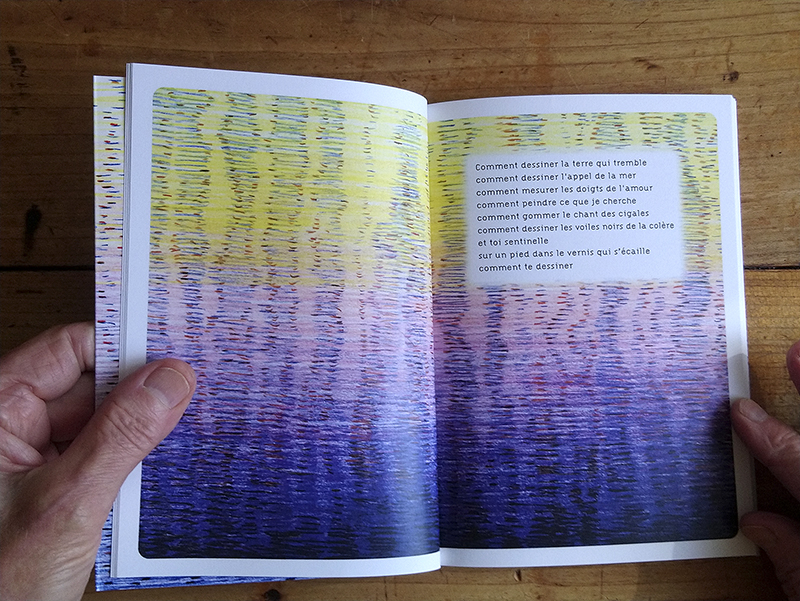 Comment dessiner la terre qui tremble
comment dessiner l'appel de la mer
comment mesurer les doigts de l'amour
comment peindre ce que je cherche
comment gommer le chant des cigales
comment dessiner les voiles noirs de la colère
et toi sentinelle
sur un pied dans le vernis qui s'écaille
comment te dessiner